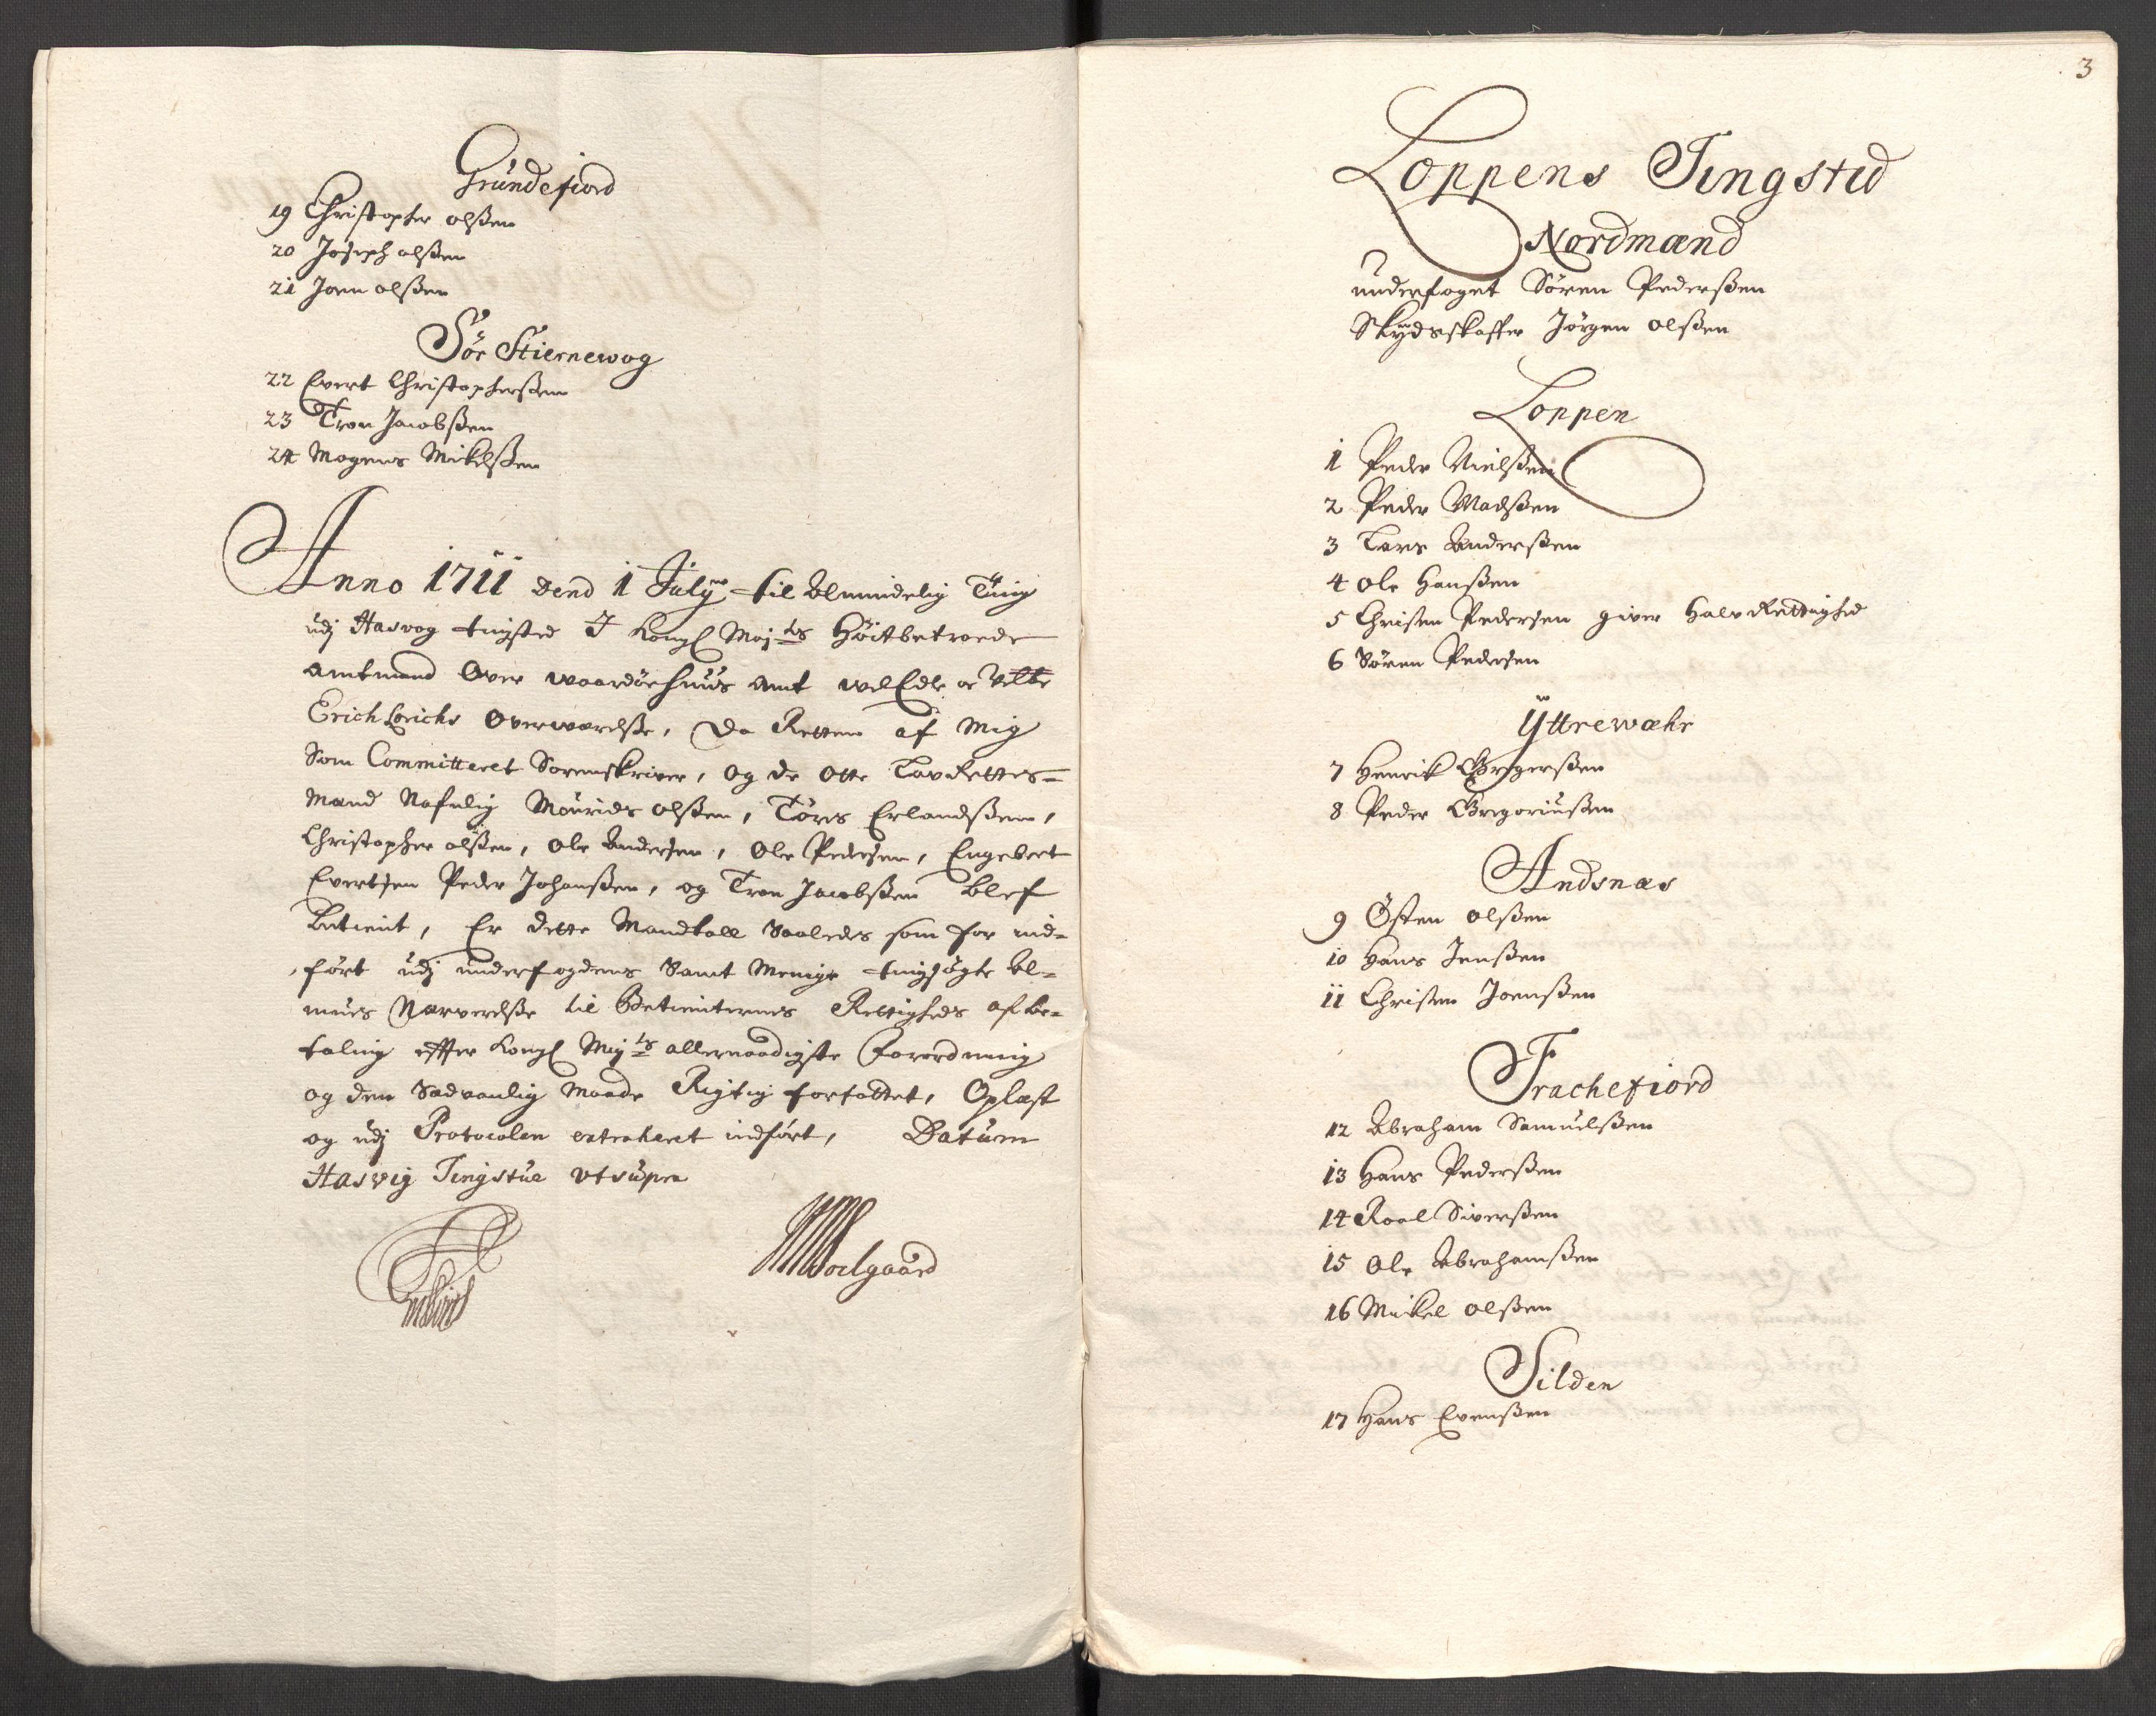 Grundefiord
19 Christopher olßen
20 Joseph olßen
21 Joen olßen
Sör Stiernewog
22 Evert Christopherßen
23 Tron Jacobßen
24 Mogens Mickelßen
Anno 1711 dend 1 July til Almindelig Ting
udj Hasvog tingsted J Kongl Maj:ts Höitbetroede
Amtmand Over Waardöehuus Amt WelEdle
Erich Lorichs Overwærelße, Da Retten af Mig
Som Committeret Sorenskriver, og de Otte LavRettes=
mænd Nafnlig Mourids olßen, Törris Erlandßen,
Christopher olßen, Ole Andersen, Ole Pedersen, Engebret
Evertsen Peder Johanßen, og Tron Jacobßen blef
betient, Er dette Mandtall Saaledes som for ind=
fört udj underfogdens Samt Menige tingsögte Al=
mues Nærverelße til Betienternes Rettigheds afbe=
taling effter Kongl May:ts allernaadigste Forordning
og den Sædvanlig Maade Rigtig forfattet, Oplæst
og udj Protocolen extraheret indfört, Datum
Hasvig Tingstue ut supra
3
Loppens Tingsted
Nordmænd
underfoget Sören Pederßen
Skydsskaffer Jörgen olßen
Loppen
1 Peder Nielßen
2 Peder Madßen
3 Lars Anderßen
4 Ole Hanßen
5 Christen Pedersen giver halv Rettighed
6 Sören Pedersen
Ÿttrewæhr
7 Henrik Gregerßen
8 Peder Gregoriußen
Andsnæs
9 Östen olßen
10 Hans Jenßen
11 Christen Joenßen
Frachefiord
12 Abraham Samuelßen
13 Hans Pederßen
14 Roal Siverßen
15 Ole Abrahamßen
16 Mickel olßen
Silden
17 Hans Evenßen